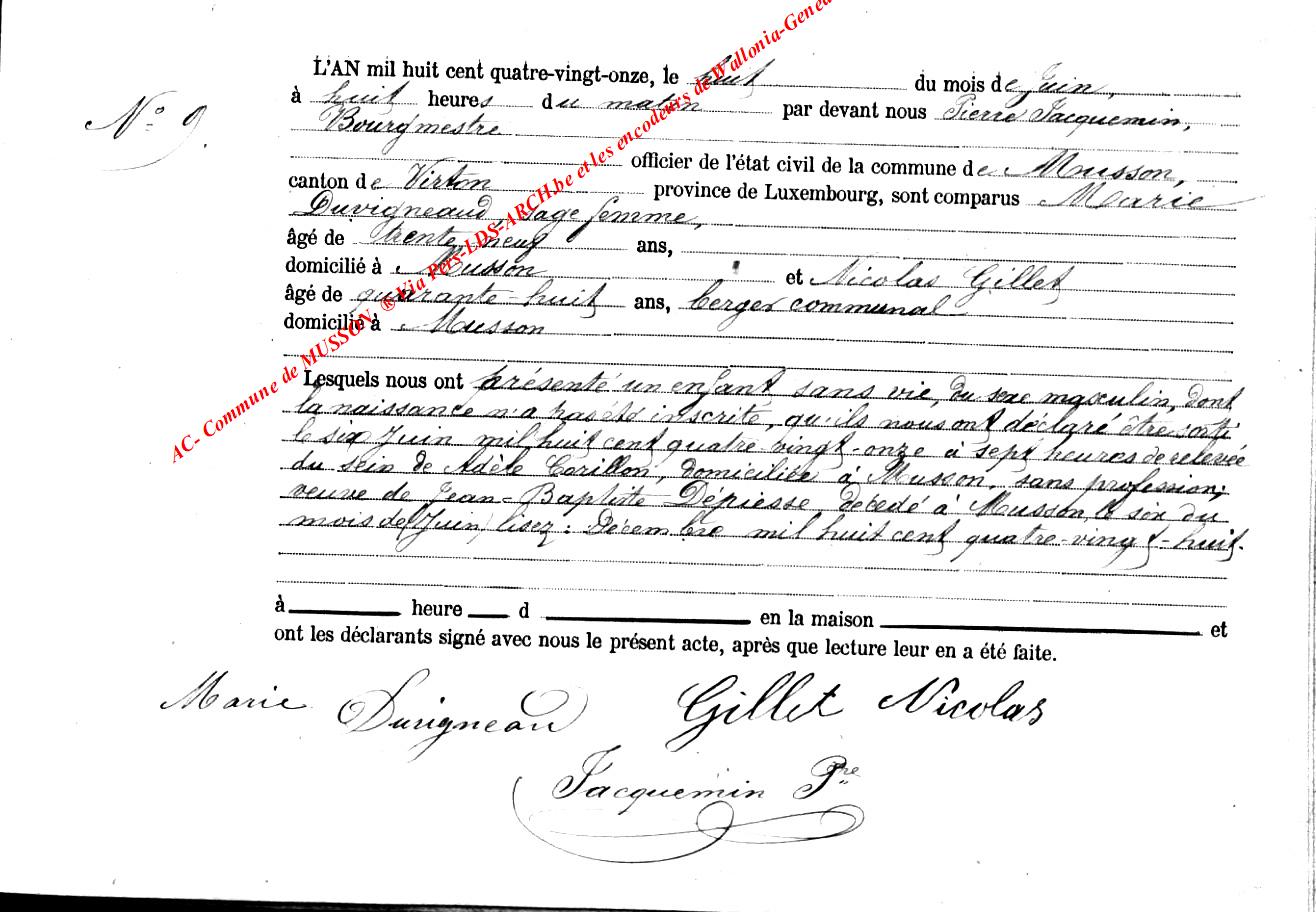 L'AN mil huit cent quatre-vingt-onze, le huit du mois de Juin,
à huit heures du matin par devant nous Pierre Jacquemin,
N° 9.
Bourgmestre
officier de l'état civil de la commune de Musson,
canton de Virton province de Luxembourg, sont comparus Marie
Duvigneaud, sage femme,
âgé de trente neuf ans,
domicilié à Musson et Nicolas Gillet
âgé de quarante-huit ans, berger communal
domicilié à Musson
Lesquels nous ont présenté un enfant sans vie, du sexe masculin, dont
la naissance n'a pas été inscrite, qu'ils nous ont déclaré être sorti
le six Juin mil huit cent quatre vingt-onze à sept heures de relevée
du sein de Adèle Carillon, domiciliée à Musson, sans profession,
veuve de Jean-Baptiste Dépiesse, décédé à Musson, le six du
mois de (Juin) lisez : Décembre mil huit cent quatre-vingt-huit.
à heure d en la maison et
ont les déclarants signé avec nous le présent acte, après que lecture leur en a été faite.
Marie Duvigneau Gillet Nicolas
Jacquemin Pre
AC- Commune de MUSSON ® Via Pers-LDS-ARCH.be et les encodeurs de Wallonia-Genea